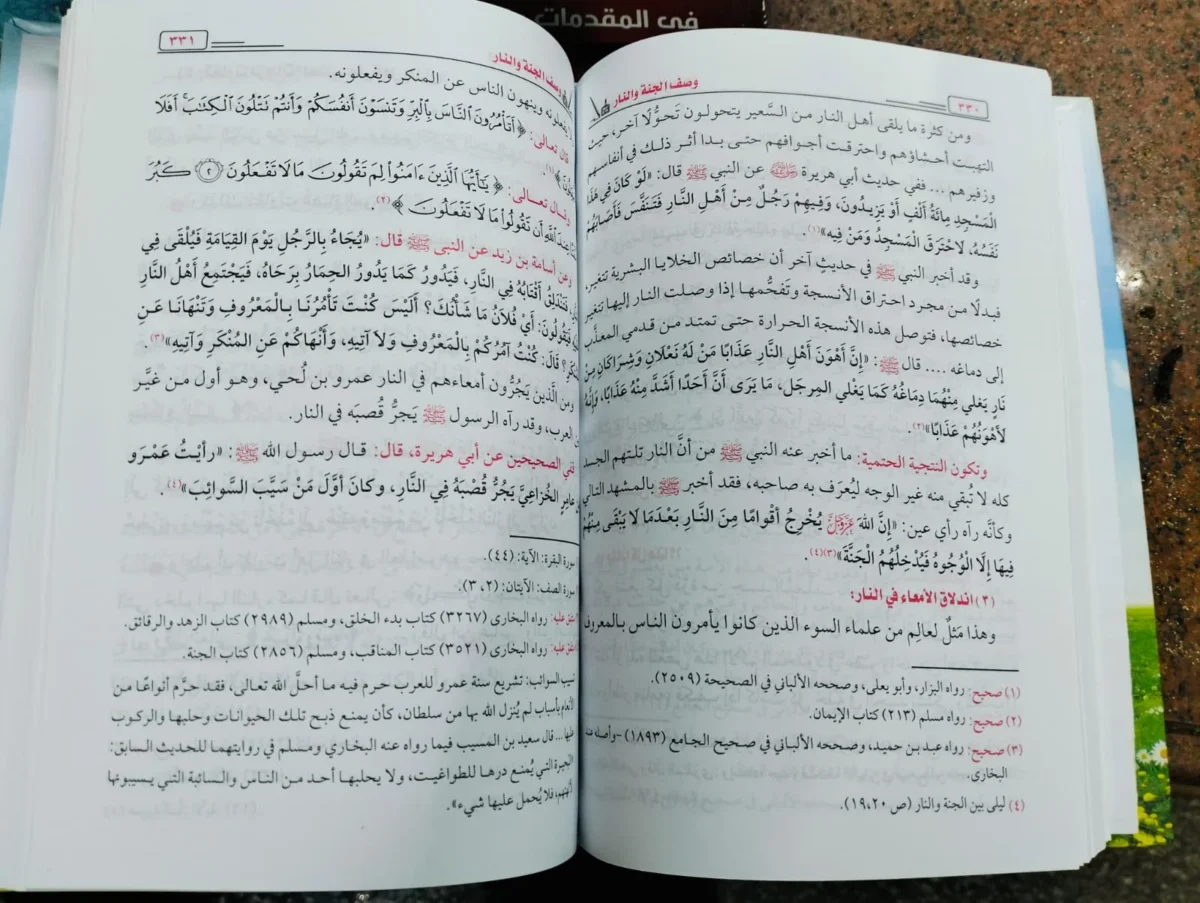 في المقدمات
وصف الجنة والنار
٣٣٠
ومن كثرة ما يلقى أهل النار من السَّعير يتحولون تَحوُّلًا آخر، حيث
التهبت أحشاؤهم واحترقت أجوافهم حتى بدا أثر ذلك في أنفاسهم
وزفيرهم ... ففي حديث أبي هريرة ﷺ عن النبي ﷺ قال: «لَوْ كَانَ فِي هَذَا
المَسْجِدِ مِائَةُ أَلْفٍ أَوْ يَزِيدُونَ، وَفِيهِمْ رَجُلٌ مِنْ أَهْلِ النَّارِ فَتَنَفَّسَ فَأَصَابَهُمْ
نَفَسُهُ، لاحْتَرَقَ الْمَسْجِدُ وَمَنْ فِيهِ»(١).
وقد أخبر النبي ﷺ في حديثٍ آخر أن خصائص الخلايا البشرية تتغير،
فبدلًا من مجرد احتراق الأنسجة وتَفحُّمها إذا وصلت النار إليها تتغير
خصائصها، فتوصل هذه الأنسجة الحرارة حتى تمتد من قدمي المعذَّب
إلى دماغه .... قال ﷺ: «إِنَّ أَهْوَنَ أَهْلِ النَّارِ عَذَابًا مَنْ لَهُ نَعْلَانِ وَشِرَاكَانِ مِنْ
نَارٍ يَغلي مِنْهُمَا دِمَاغُهُ كَمَا يَغلي المِرجَل، مَا يَرَى أَنَّ أَحَدًا أَشَدُّ مِنْهُ عَذَابًا، وَإِنَّهُ
لأَهْوَنُهُمْ عَذَابًا»(٢).
وتكون النتيجة الحتمية: ما أخبر عنه النبي ﷺ من أنَّ النار تلتهم الجسد
كله لا تُبقي منه غير الوجه ليُعرَف به صاحبه، فقد أخبر ﷺ بالمشهد التالي
وكأنَّه رآه رأي عين: «إِنَّ اللهَ عَزَّوَجَلَّ يُخْرِجُ أَقْوَامًا مِنَ النَّارِ بَعْدَمَا لَا يَبْقَى مِنْهُمْ
فِيهَا إِلَّا الْوُجُوهُ فَيُدْخِلُهُمُ الْجَنَّةَ»(٣)(٤).
(٢) اندلاق الأمعاء في النار:
وهذا مَثلٌ لعالِم من علماء السوء الذين كانوا يأمرون الناس بالمعروف
(١) صحيح: رواه البزار، وأبو يعلى، وصححه الألباني في الصحيحة (٢٥٠٩).
(٢) صحيح: رواه مسلم (٢١٣) كتاب الإيمان.
(٣) صحيح: رواه عبد بن حميد، وصححه الألباني في صحيح الجامع (١٨٩٣) -وأصله
البخارى.
(٤) ليلى بين الجنة والنار (ص ١٩،٢٠).
وصف الجنة والنار
٣٣١
يفعلونه وينهون الناس عن المنكر ويفعلونه.
قال تعالى: ﴿أَتَأْمُرُونَ النَّاسَ بِالْبِرِّ وَتَنسَوْنَ أَنفُسَكُمْ وَأَنتُمْ تَتْلُونَ الْكِتَٰبَ أَفَلَا
﴾(١).
وقال تعالى: ﴿يَٰٓأَيُّهَا الَّذِينَ ءَامَنُوا لِمَ تَقُولُونَ مَا لَا تَفْعَلُونَ ۝٢ كَبُرَ
عِندَ اللَّهِ أَن تَقُولُوا مَا لَا تَفْعَلُونَ﴾(٢).
وعن أسامة بن زيد عن النبى ﷺ قال: «يُجَاءُ بِالرَّجُلِ يَوْمَ القِيَامَةِ فَيُلْقَى فِي
فَتَنْدَلِقُ أَقْتَابُهُ فِي النَّارِ، فَيَدُورُ كَمَا يَدُورُ الحِمَارُ بِرَحَاهُ، فَيَجْتَمِعُ أَهْلُ النَّارِ
فَيَقُولُونَ: أَيْ فُلَانُ مَا شَأْنُكَ؟ أَلَيْسَ كُنْتَ تَأْمُرُنَا بِالْمَعْرُوفِ وَتَنْهَانَا عَنِ
قَالَ: كُنْتُ آمُرُكُمْ بِالْمَعْرُوفِ وَلَا آتِيهِ، وَأَنْهَاكُمْ عَنِ المُنْكَرِ وَآتِيهِ»(٣).
ومن الَّذين يَجرُّون أمعاءهم في النار عمرو بن لُحي، وهو أول من غيَّر
العرب، وقد رآه الرسول ﷺ يَجرُّ قُصبَه في النار.
ففي الصحيحين عن أبي هريرة، قال: قال رسول الله ﷺ: «رأيتُ عَمْرَو
عَامِرٍ الخُزَاعِيَّ يَجُرُّ قُصْبَهُ فِي النَّارِ، وكانَ أوَّلَ مَنْ سَيَّبَ السَّوائِبَ»(٤).
سورة البقرة: الآية: (٤٤).
سورة الصف: الآيتان: (٢، ٣).
متفق عليه: رواه البخارى (٣٢٦٧) كتاب بدء الخلق، ومسلم (٢٩٨٩) كتاب الزهد والرقائق.
متفق عليه: رواه البخارى (٣٥٢١) كتاب المناقب، ومسلم (٢٨٥٦) كتاب الجنة.
تسيب السوائب: تشريع سنة عمرو للعرب حرم فيه ما أحلَّ الله تعالى، فقد حرَّم أنواعًا من
الأنعام بأسباب لم يُنزل الله بها من سلطان، كأن يمنع ذبح تلك الحيوانات وحلبها والركوب
عليها... قال سعيد بن المسيب فيما رواه عنه البخاري ومسلم في روايتهما للحديث السابق:
البحيرة التي يُمنع درها للطواغيت، ولا يحلبها أحد من الناس والسائبة التي يسيبونها
لآلهتهم، فلا يُحمل عليها شيء».